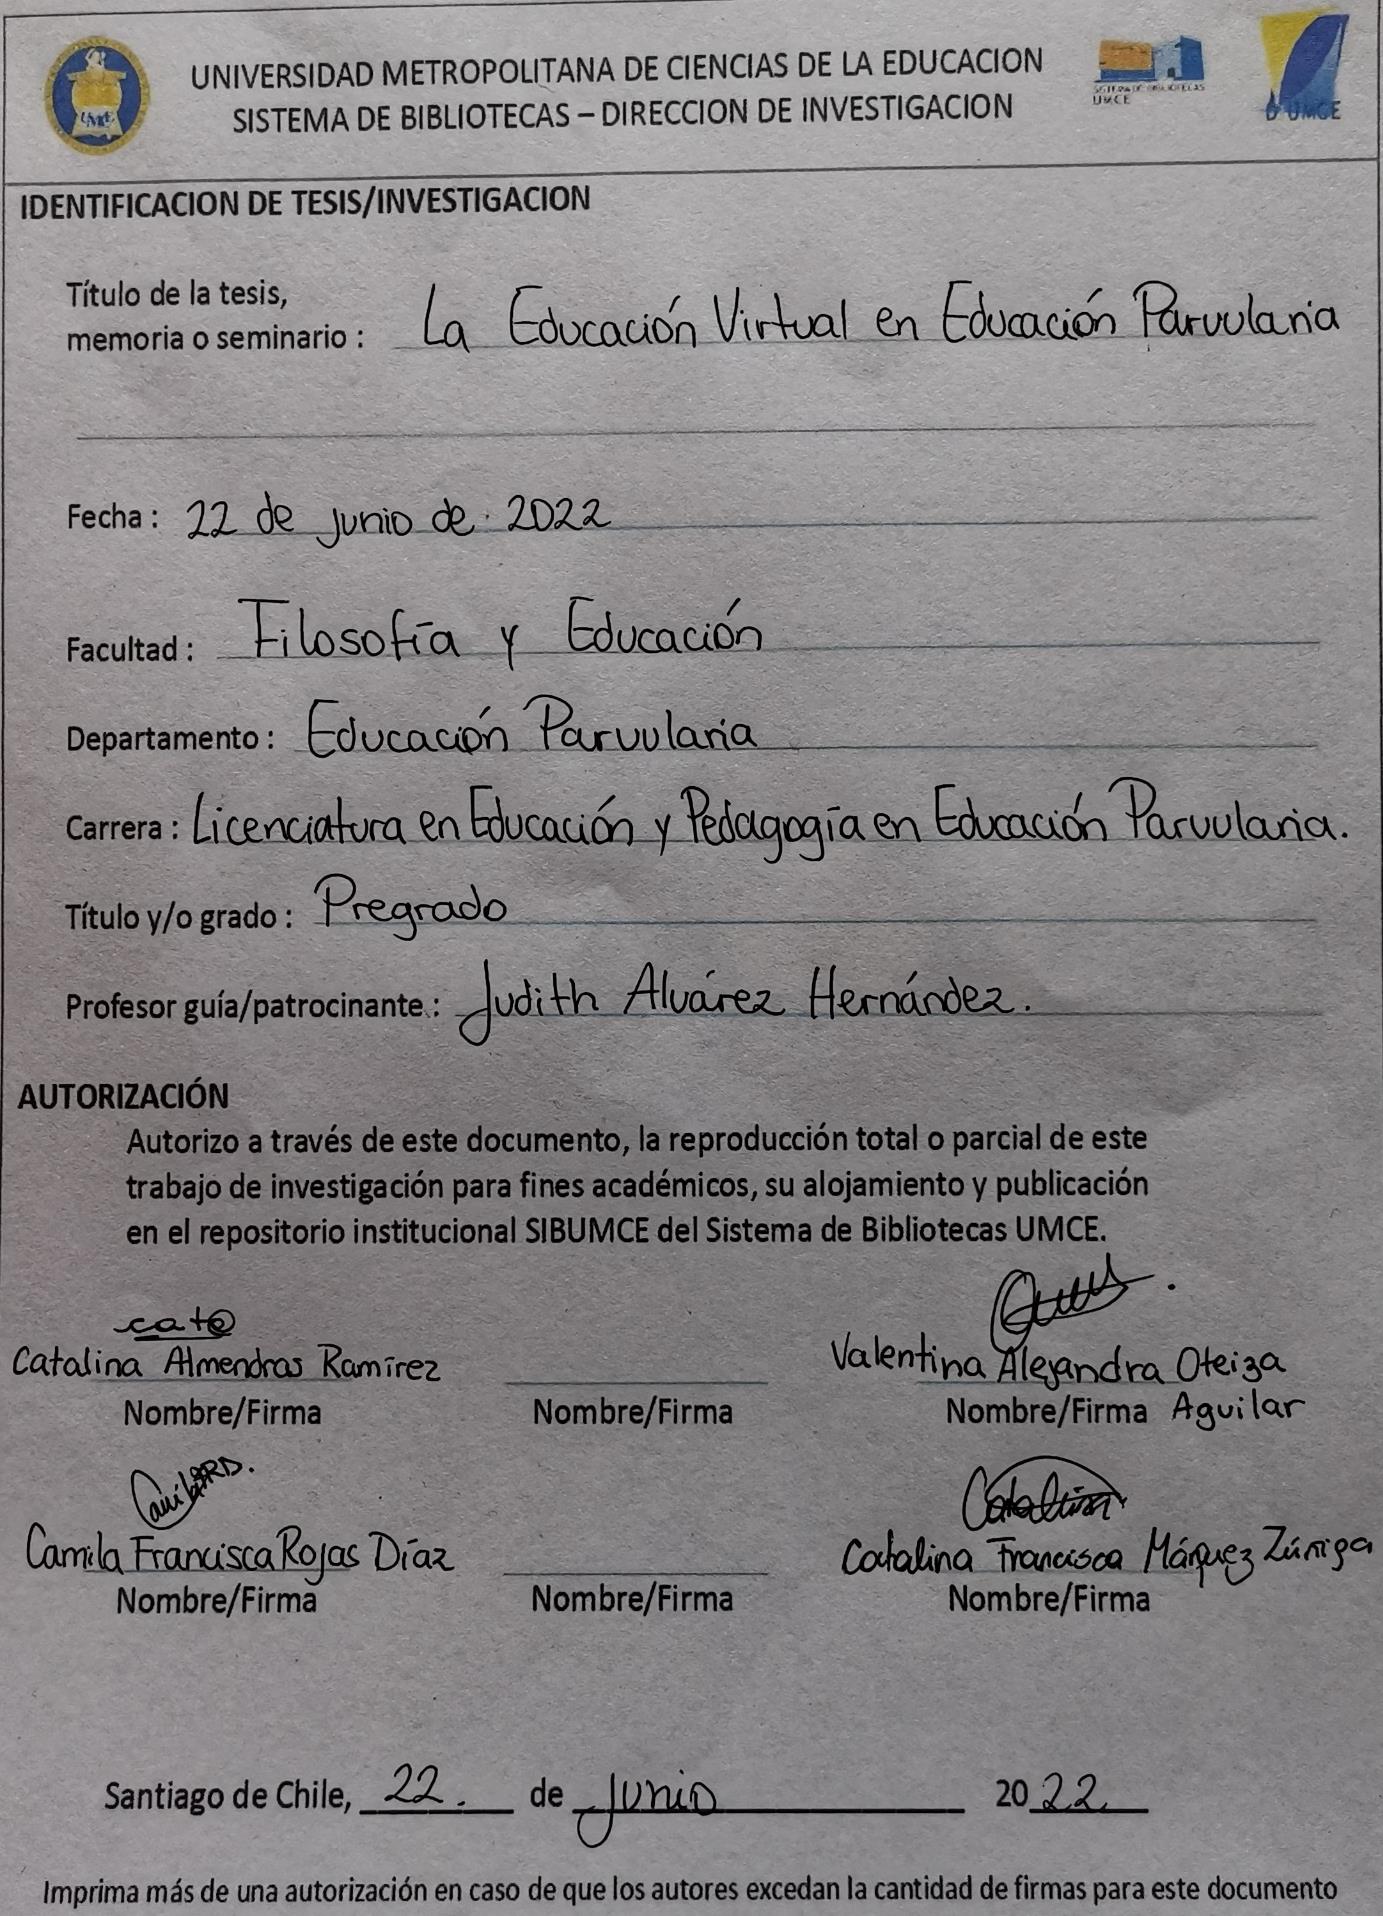 UMCE
UNIVERSIDAD METROPOLITANA DE CIENCIAS DE LA EDUCACION
SISTEMA DE BIBLIOTECAS – DIRECCION DE INVESTIGACION
SISTEMA DE BIBLIOTECAS
UMCE
D UMCE
IDENTIFICACION DE TESIS/INVESTIGACION
Título de la tesis,
memoria o seminario : La Educación Virtual en Educación Parvularia
Fecha : 22 de junio de 2022
Facultad : Filosofía y Educación
Departamento : Educación Parvularia
Carrera : Licenciatura en Educación y Pedagogía en Educación Parvularia.
Título y/o grado : Pregrado
Profesor guía/patrocinante : Judith Alvárez Hernández.
AUTORIZACIÓN
Autorizo a través de este documento, la reproducción total o parcial de este
trabajo de investigación para fines académicos, su alojamiento y publicación
en el repositorio institucional SIBUMCE del Sistema de Bibliotecas UMCE.
cata
Catalina Almendras Ramírez Valentina Alejandra Oteiza
Nombre/Firma Nombre/Firma Nombre/Firma Aguilar
CamilaRD. Catalina
Camila Francisca Rojas Díaz Catalina Francisca Márquez Zúñiga
Nombre/Firma Nombre/Firma Nombre/Firma
Santiago de Chile, 22. de Junio 2022
Imprima más de una autorización en caso de que los autores excedan la cantidad de firmas para este documento